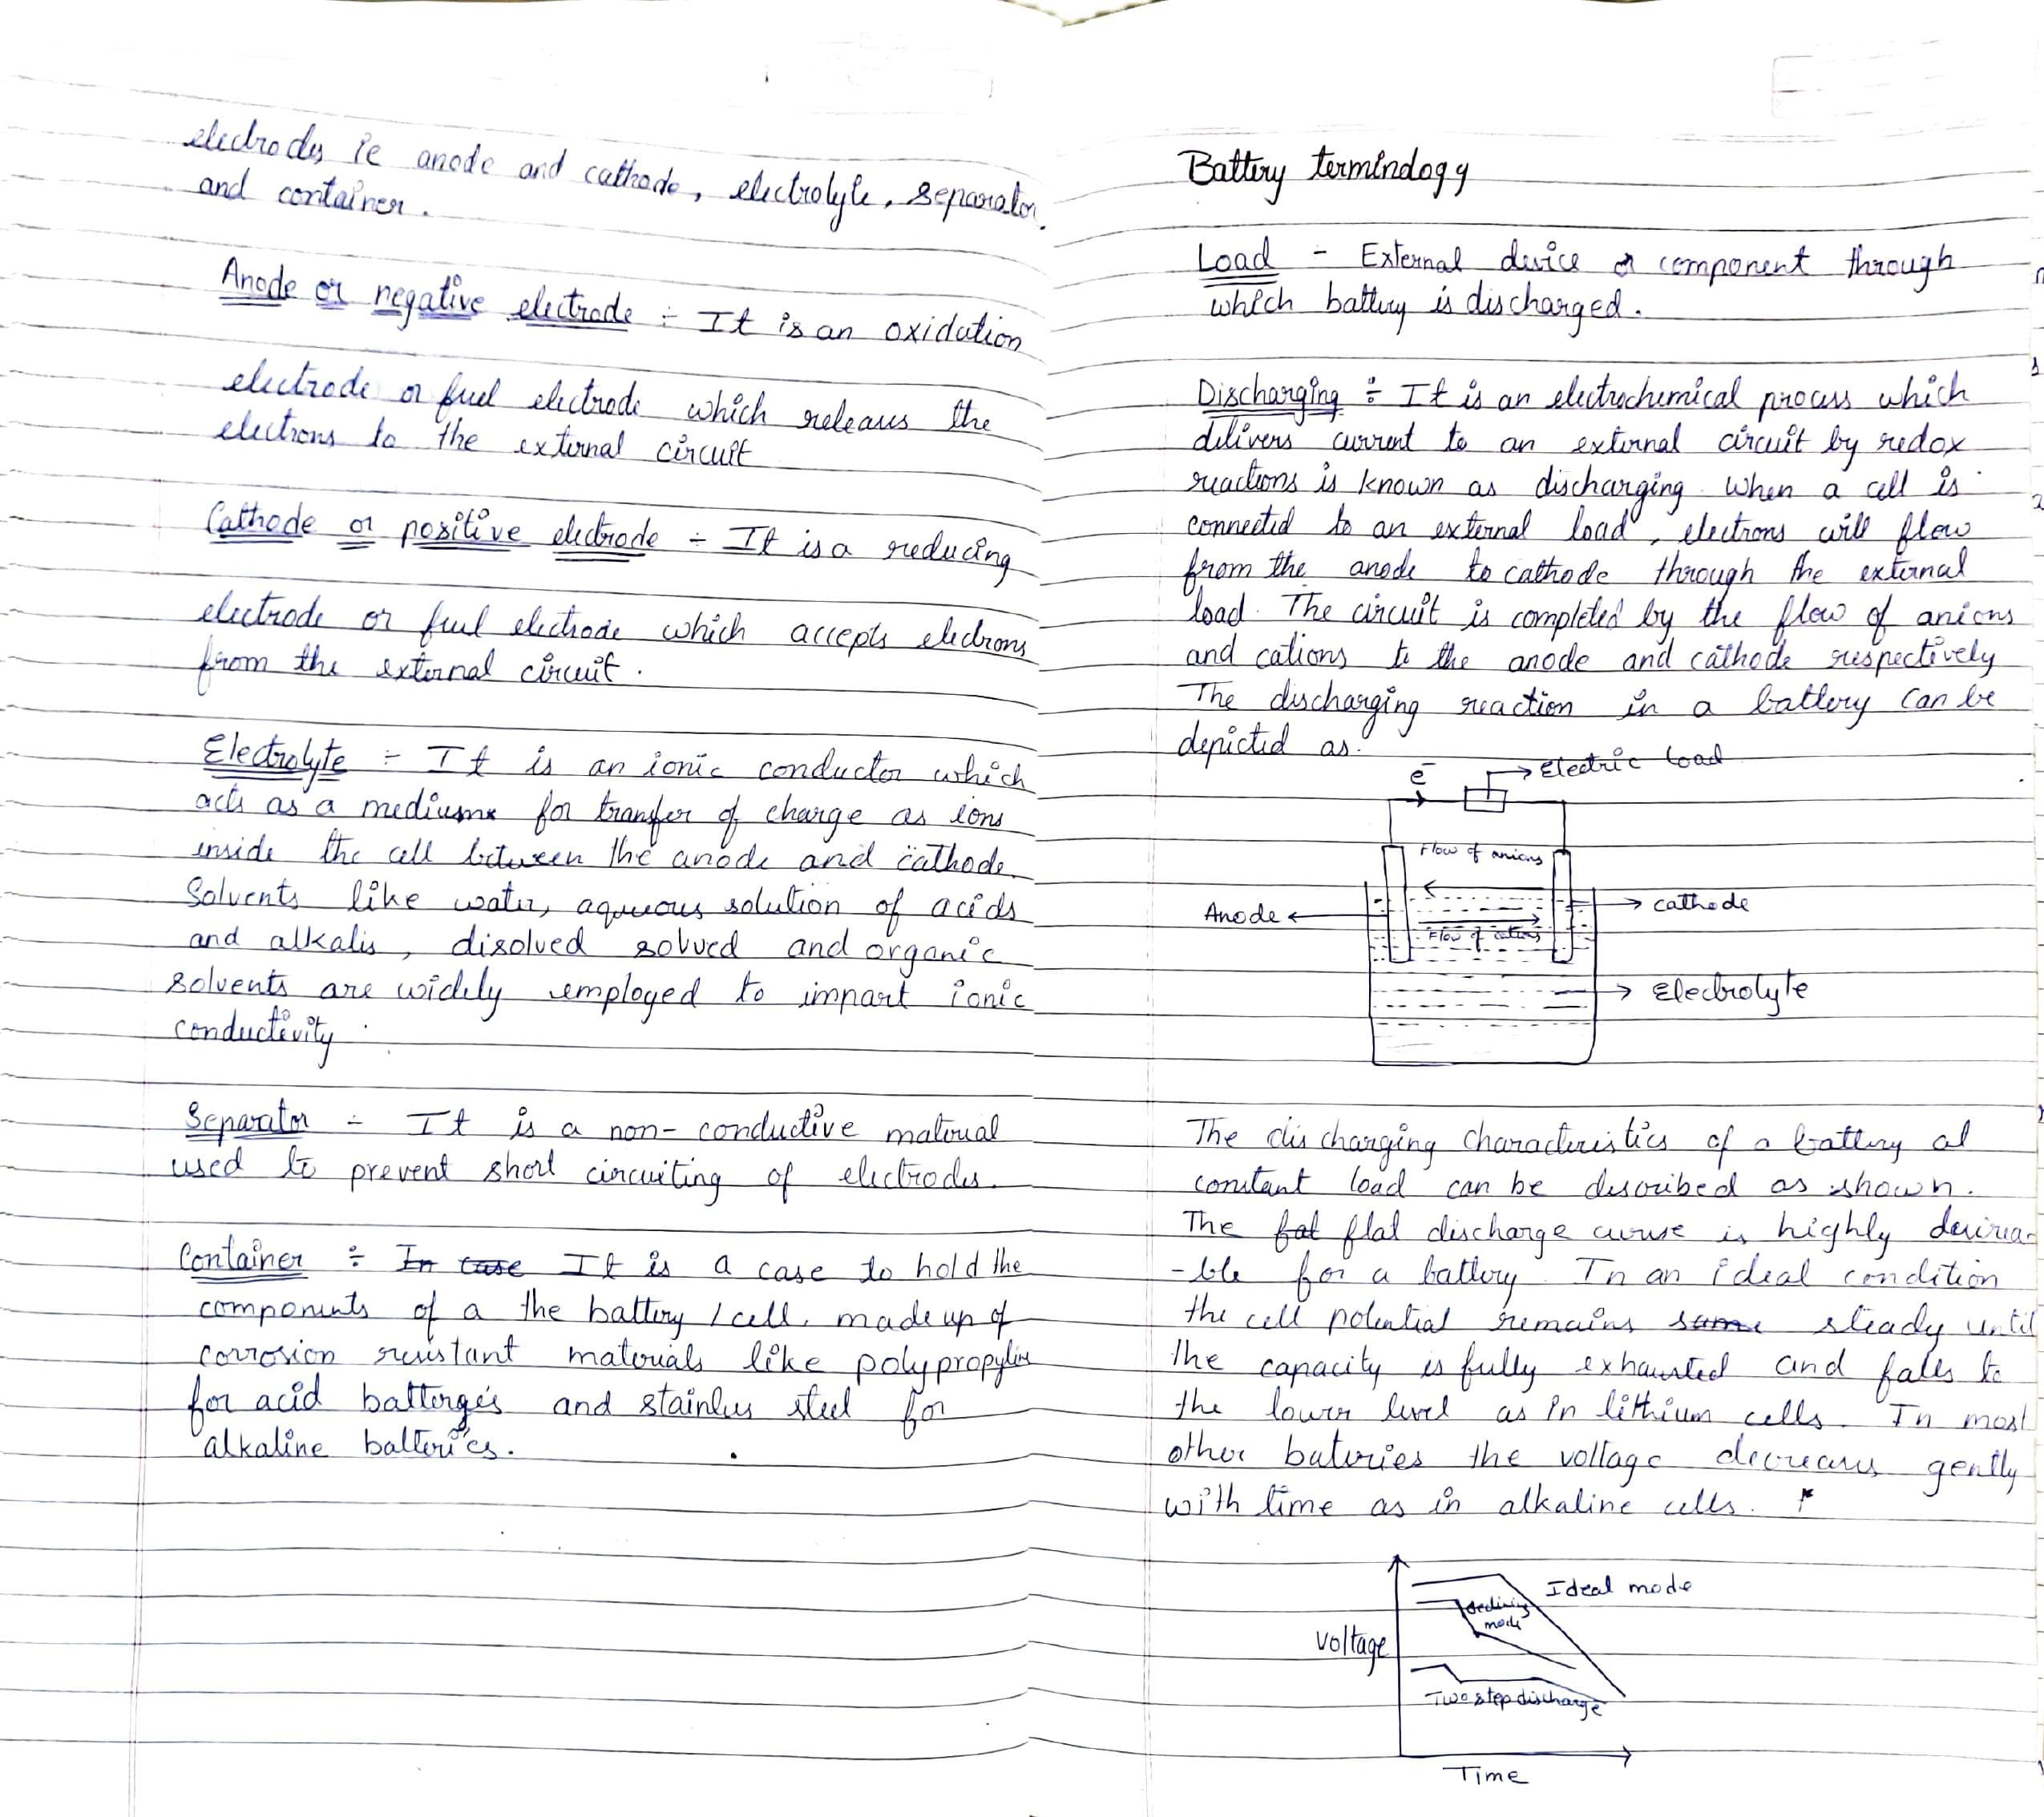 electrodes ie anode and cathode, electrolyte, separator
and container.
Anode or negative electrode ÷ It is an oxidation
electrode or fuel electrode which releases the
electrons to the external circuit
Cathode or positive electrode ÷ It is a reducing
electrode or fuel electrode which accepts electrons
from the external circuit.
Electrolyte ÷ It is an ionic conductor which
acts as a medium for transfer of charge as ions
inside the cell between the anode and cathode.
Solvents like water, aqueous solution of acids
and alkalis, disolved solved and organic
solvents are widely employed to impart ionic
conductivity.
Separator ÷ It is a non-conductive material
used to prevent short circuiting of electrodes.
Container ÷ In case It is a case to hold the
components of a the battery / cell. made up of
corrosion resistant materials like polypropylene
for acid batterges and stainless steel for
alkaline batteries.
Battery terminology
Load - External device or component through
which battery is discharged.
Discharging ÷ It is an electrochemical process which
delivers current to an external circuit by redox
reactions is known as discharging. When a cell is
connected to an external load, electrons will flow
from the anode to cathode through the external
load. The circuit is completed by the flow of anions
and cations to the anode and cathode respectively
The discharging reaction in a battery can be
depicted as.
e⁻ → Electric load
Flow of anions
Anode
cathode
Flow of cations
Electrolyte
The discharging characteristics of a battery at
constant load can be described as shown.
The fat flat discharge curve is highly desira-
-ble for a battery. In an ideal condition
the cell potential remains same steady until
the capacity is fully exhausted and falls to
the lower level as in lithium cells. In most
other batteries the voltage decreases gently
with time as in alkaline cells.
Ideal mode
declining
mode
Voltage
Two step discharge
Time